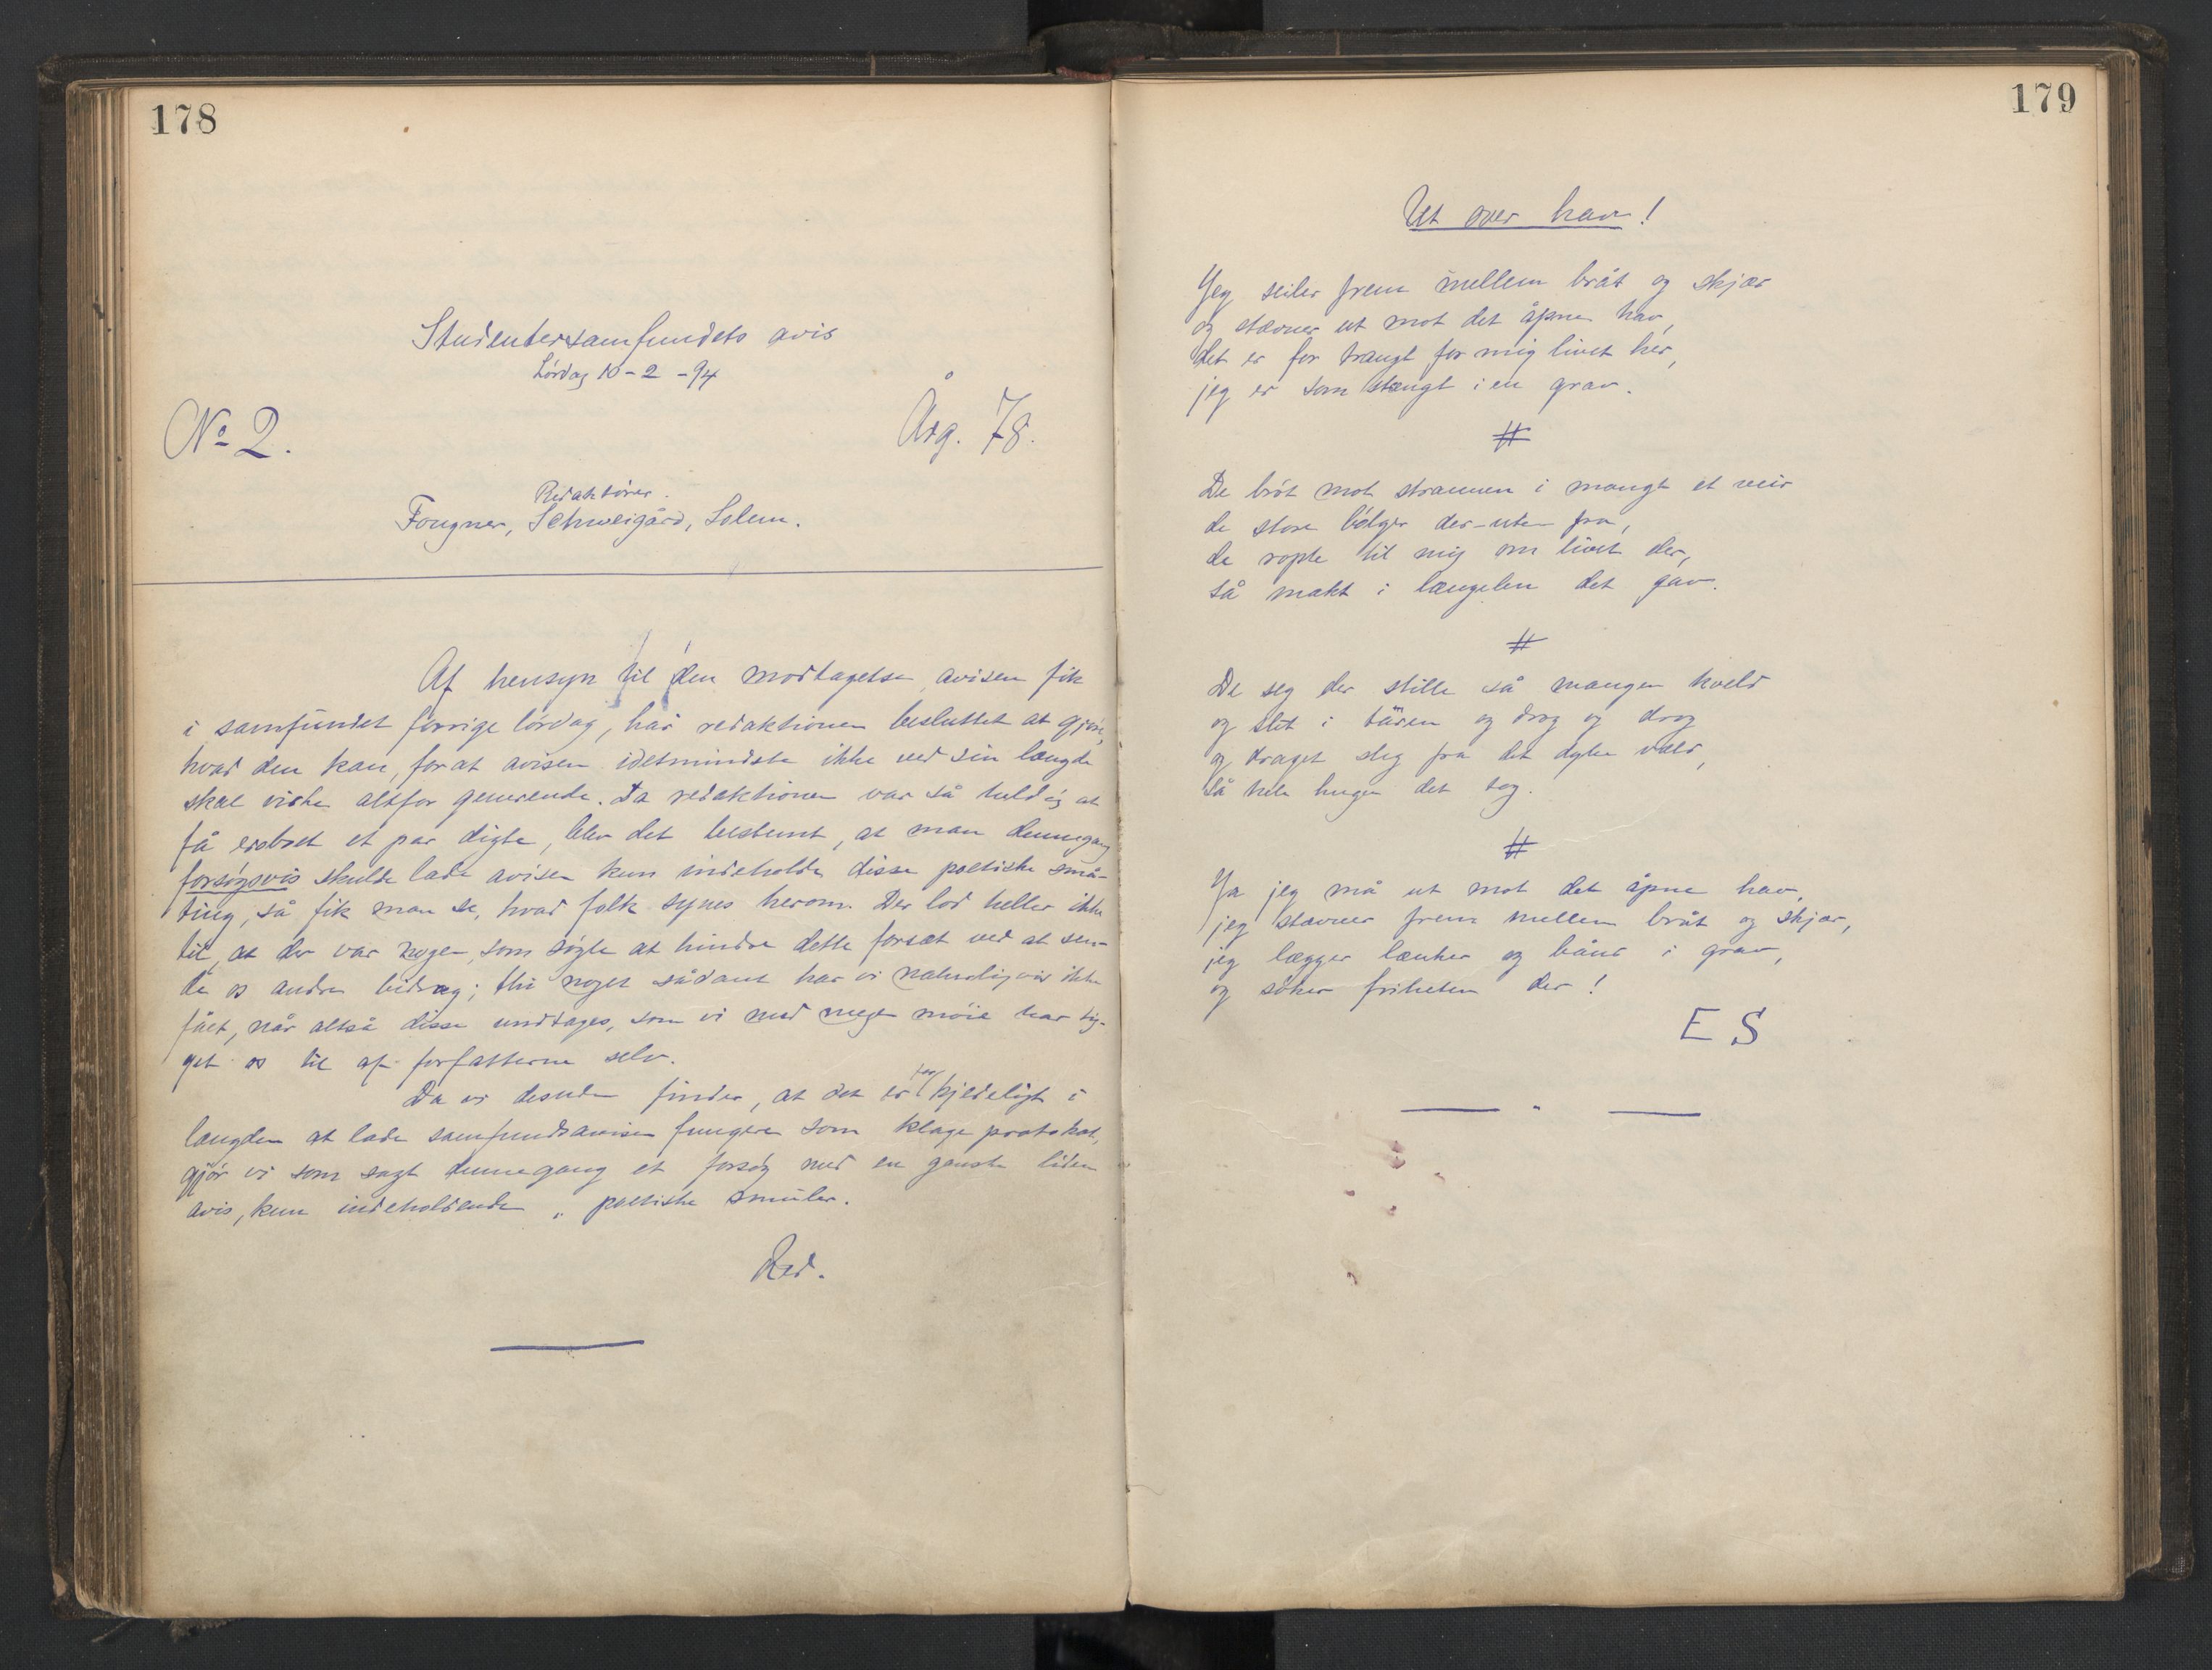 178
Studentersamfundets avis
Lördag 10-2-94
No 2.
Årg. 78.
Redaktörer.
Fougner, Schweigård, Solem.
Af hensyn til den modtagelse, avisen fik
i samfundet forrige lördag, har redaktionen besluttet at gjöre,
hvad den kan, forat avisen idetmindste ikke ved sin længde
skal virke altfor generende. Da redaktionen var så heldig at
få et par digte, blev det bestemt, at man dennegang
forsögsvis skulde lade avisen kun indeholde disse poetiske små-
ting, så fik man se, hvad folk synes herom. Der lod heller ikke
til, at der var nogen, som sögte at hindre dette forsæt ved at sen-
de os andre bidrag; thi noget sådant har vi naturligvis ikke
fået, når altså disse undtages, som vi med megen möie har tig-
get os til af forfatterne selv.
Da vi desuden finder, at det er for kjedeligt i
længden at lade samfundsavisen fungere som klageprotokol,
gjör vi som sagt dennegang et forsög med en ganske liden
avis, kun indeholdende „ poetiske smuler.
Red.
179
Ut over hav!
Jeg seiler frem mellem bråt og skjær
og stævner ut mot det åpne hav,
det er for trangt for mig livet her,
jeg er som stængt i en grav.
#
De bröt mot strannen i mangt et veir
de store bölger der-ute fra,
de ropte til mig om livet der,
så makt i længselen det gav.
#
De seg der stille så mangen kveld
og slet i tåren og drog og drog
og draget steg fra det dype væld,
så hele hugen det tog.
#
Ja jeg må ut mot det åpne hav,
jeg stævner frem mellem bråt og skjær,
jeg lægger lænker og bånd i grav,
og söker friheten der!
E S